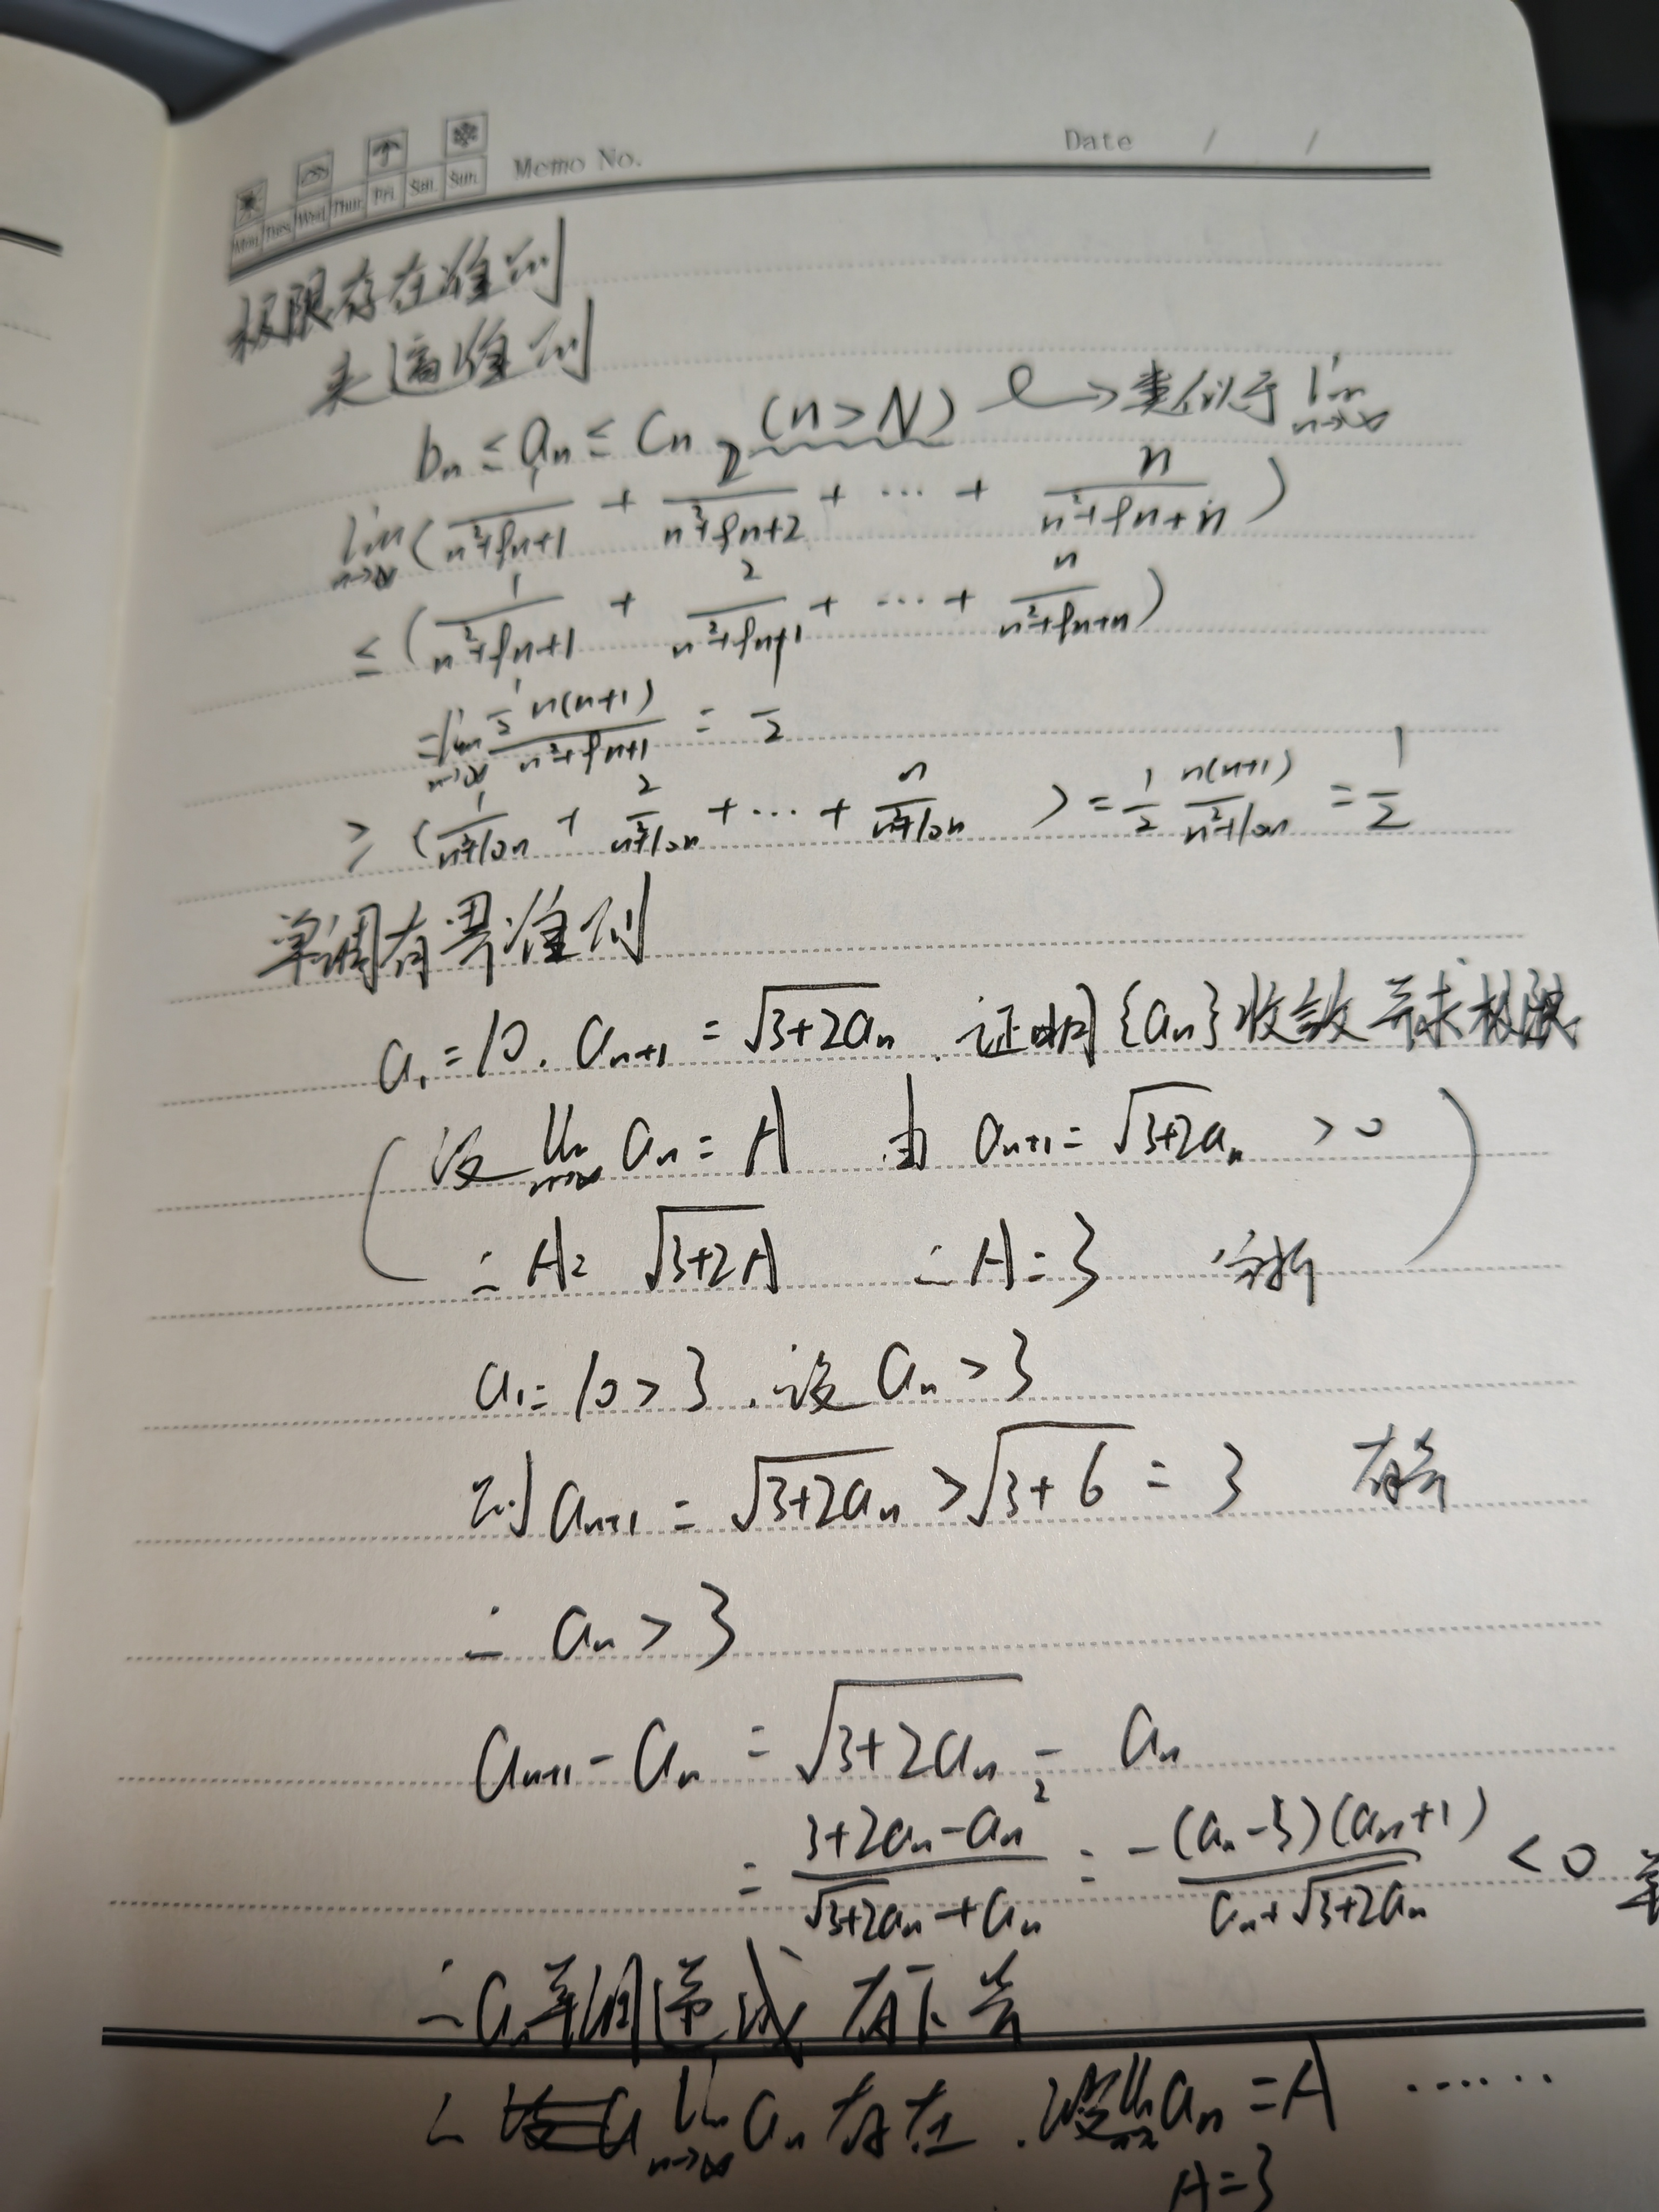 Memo No. Date / /
Mon Tues Wed Thur Fri Sat Sun
极限存在准则
夹逼准则
bn ≤ an ≤ Cn (n>N) → 类似于 lim n→∞
lim n→∞ (1/(n²+9n+1) + 2/(n²+9n+2) + … + n/(n²+9n+n))
≤ (1/(n²+9n+1) + 2/(n²+9n+1) + … + n/(n²+9n+n))
= lim n→∞ ½n(n+1)/(n²+9n+1) = 1/2
≥ (1/(n²+10n) + 2/(n²+10n) + … + n/(n²+10n)) = 1/2 n(n+1)/(n²+10n) = 1/2
单调有界准则
a₁=10. an+1 = √(3+2an). 证明{an}收敛并求极限
(设 lim n→∞ an = A 由 an+1 = √(3+2an) >0
∴ A = √(3+2A) ∴ A=3 分析)
a₁=10>3. 设 an>3
则 an+1 = √(3+2an) > √(3+6) = 3 有界
∴ an > 3
an+1 - an = √(3+2an) - an
= (3+2an-an²)/(√(3+2an)+an) = -(an-3)(an+1)/(an+√(3+2an)) <0 单
∴ an单调递减 有下界
∴ lim n→∞ an 存在. 设 lim n→∞ an = A ……
A=3